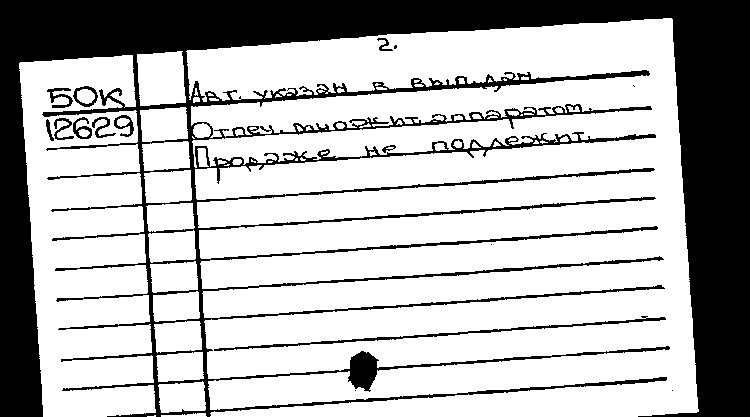 2.
БОК Авт. указан в вып. дан.
12629 Отпеч. множит. аппаратом.
Продаже не подлежит.